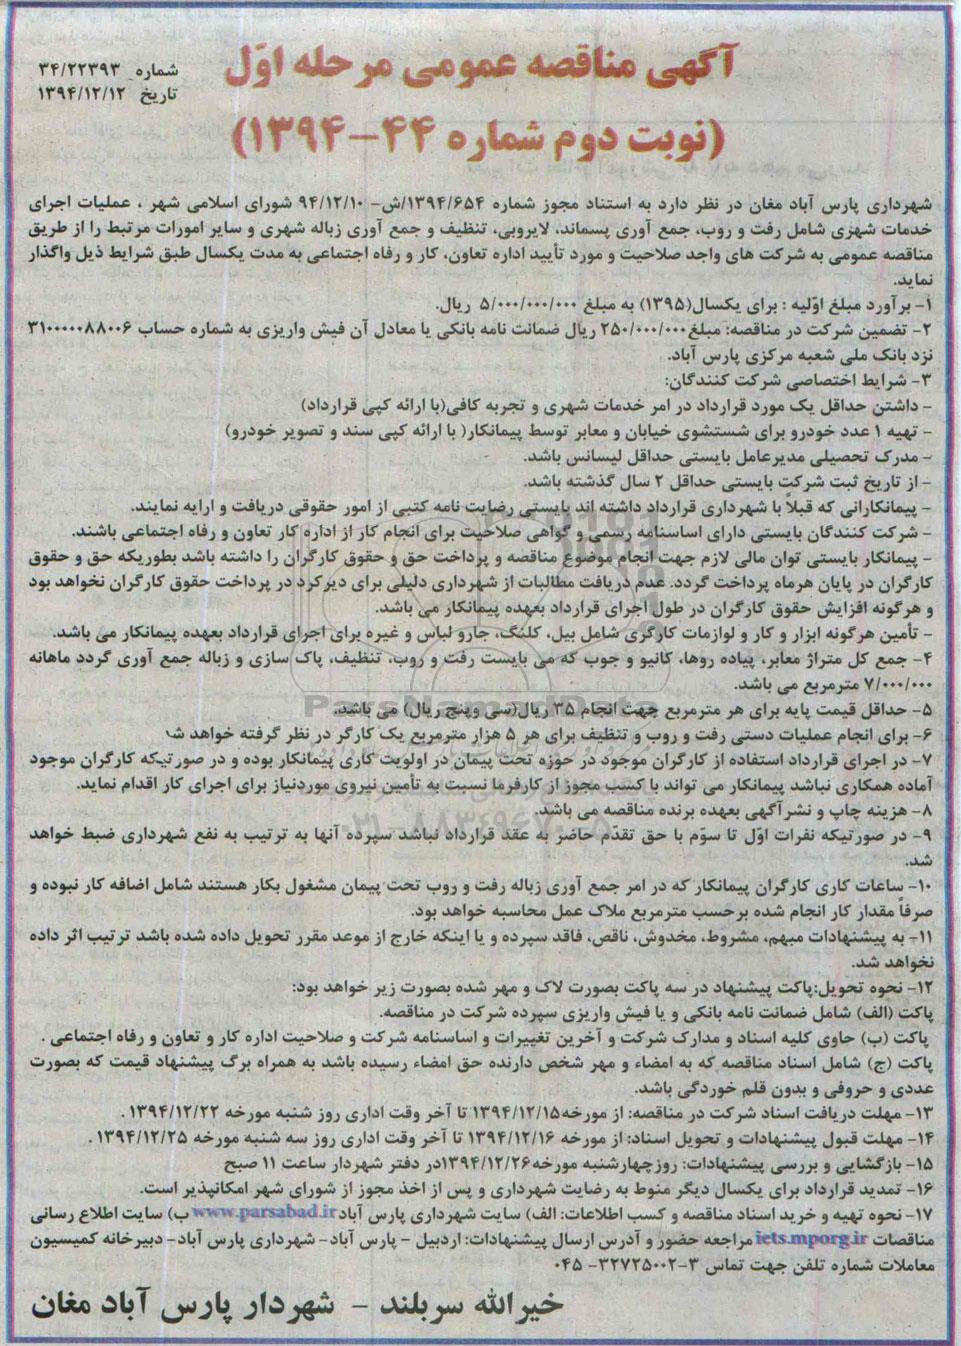 آگهی مناقصه عمومی مرحله اوّل
شماره ۳۴/۲۲۳۹۳
تاریخ ۱۳۹۴/۱۲/۱۲
(نوبت دوم شماره ۴۴-۱۳۹۴)
شهرداری پارس آباد مغان در نظر دارد به استناد مجوز شماره ۱۳۹۴/۶۵۴/ش- ۹۴/۱۲/۱۰ شورای اسلامی شهر ، عملیات اجرای
خدمات شهری شامل رفت و روب، جمع آوری پسماند، لایروبی، تنظیف و جمع آوری زباله شهری و سایر امورات مرتبط را از طریق
مناقصه عمومی به شرکت های واجد صلاحیت و مورد تأیید اداره تعاون، کار و رفاه اجتماعی به مدت یکسال طبق شرایط ذیل واگذار
نماید.
۱- برآورد مبلغ اوّلیه : برای یکسال(۱۳۹۵) به مبلغ ۵/۰۰۰/۰۰۰/۰۰۰ ریال.
۲- تضمین شرکت در مناقصه: مبلغ۲۵۰/۰۰۰/۰۰۰ ریال ضمانت نامه بانکی یا معادل آن فیش واریزی به شماره حساب ۳۱۰۰۰۰۰۸۸۰۰۶
نزد بانک ملی شعبه مرکزی پارس آباد.
۳- شرایط اختصاصی شرکت کنندگان:
- داشتن حداقل یک مورد قرارداد در امر خدمات شهری و تجربه کافی(با ارائه کپی قرارداد)
- تهیه ۱ عدد خودرو برای شستشوی خیابان و معابر توسط پیمانکار( با ارائه کپی سند و تصویر خودرو)
- مدرک تحصیلی مدیرعامل بایستی حداقل لیسانس باشد.
- از تاریخ ثبت شرکت بایستی حداقل ۲ سال گذشته باشد.
- پیمانکارانی که قبلاً با شهرداری قرارداد داشته اند بایستی رضایت نامه کتبی از امور حقوقی دریافت و ارایه نمایند.
- شرکت کنندگان بایستی دارای اساسنامه رسمی و گواهی صلاحیت برای انجام کار از اداره کار تعاون و رفاه اجتماعی باشند.
- پیمانکار بایستی توان مالی لازم جهت انجام موضوع مناقصه و پرداخت حق و حقوق کارگران را داشته باشد بطوریکه حق و حقوق
کارگران در پایان هرماه پرداخت گردد. عدم دریافت مطالبات از شهرداری دلیلی برای دیرکرد در پرداخت حقوق کارگران نخواهد بود
و هرگونه افزایش حقوق کارگران در طول اجرای قرارداد بعهده پیمانکار می باشد.
- تأمین هرگونه ابزار و کار و لوازمات کارگری شامل بیل، کلنگ، جارو لباس و غیره برای اجرای قرارداد بعهده پیمانکار می باشد.
۴- جمع کل متراژ معابر، پیاده روها، کانیو و جوب که می بایست رفت و روب، تنظیف، پاک سازی و زباله جمع آوری گردد ماهانه
۷/۰۰۰/۰۰۰ مترمربع می باشد.
ParsNamadData
۵- حداقل قیمت پایه برای هر مترمربع جهت انجام ۳۵ ریال(سی وپنج ریال) می باشد.
۶- برای انجام عملیات دستی رفت و روب و تنظیف برای هر ۵ هزار مترمربع یک کارگر در نظر گرفته خواهد
۷- در اجرای قرارداد استفاده از کارگران موجود در حوزه تحت پیمان در اولویت کاری پیمانکار بوده و در صورتیکه کارگران موجود
آماده همکاری نباشد پیمانکار می تواند با کسب مجوز از کارفرما نسبت به تأمین نیروی موردنیاز برای اجرای کار اقدام نماید.
۸- هزینه چاپ و نشرآگهی بعهده برنده مناقصه می باشد.
۹- در صورتیکه نفرات اوّل تا سوّم با حق تقدّم حاضر به عقد قرارداد نباشد سپرده آنها به ترتیب به نفع شهرداری ضبط خواهد
شد.
۱۰- ساعات کاری کارگران پیمانکار که در امر جمع آوری زباله رفت و روب تحت پیمان مشغول بکار هستند شامل اضافه کار نبوده و
صرفاً مقدار کار انجام شده برحسب مترمربع ملاک عمل محاسبه خواهد بود.
۱۱- به پیشنهادات مبهم، مشروط، مخدوش، ناقص، فاقد سپرده و یا اینکه خارج از موعد مقرر تحویل داده شده باشد ترتیب اثر داده
نخواهد شد.
۱۲- نحوه تحویل:پاکت پیشنهاد در سه پاکت بصورت لاک و مهر شده بصورت زیر خواهد بود:
پاکت (الف) شامل ضمانت نامه بانکی و یا فیش واریزی سپرده شرکت در مناقصه.
پاکت (ب) حاوی کلیه اسناد و مدارک شرکت و آخرین تغییرات و اساسنامه شرکت و صلاحیت اداره کار و تعاون و رفاه اجتماعی .
پاکت (ج) شامل اسناد مناقصه که به امضاء و مهر شخص دارنده حق امضاء رسیده باشد به همراه برگ پیشنهاد قیمت که بصورت
عددی و حروفی و بدون قلم خوردگی باشد.
۱۳- مهلت دریافت اسناد شرکت در مناقصه: از مورخه۱۳۹۴/۱۲/۱۵ تا آخر وقت اداری روز شنبه مورخه ۱۳۹۴/۱۲/۲۲ .
۱۴- مهلت قبول پیشنهادات و تحویل اسناد: از مورخه ۱۳۹۴/۱۲/۱۶ تا آخر وقت اداری روز سه شنبه مورخه ۱۳۹۴/۱۲/۲۵ .
۱۵- بازگشایی و بررسی پیشنهادات: روزچهارشنبه مورخه۱۳۹۴/۱۲/۲۶در دفتر شهردار ساعت ۱۱ صبح
۱۶- تمدید قرارداد برای یکسال دیگر منوط به رضایت شهرداری و پس از اخذ مجوز از شورای شهر امکانپذیر است.
۱۷- نحوه تهیه و خرید اسناد مناقصه و کسب اطلاعات: الف) سایت شهرداری پارس آباد www.parsabad.ir ب) سایت اطلاع رسانی
مناقصات iets.mporg.ir مراجعه حضور و آدرس ارسال پیشنهادات: اردبیل - پارس آباد- شهرداری پارس آباد- دبیرخانه کمیسیون
معاملات شماره تلفن جهت تماس ۳-۳۲۷۲۵۰۰۲- ۰۴۵
خیرالله سربلند - شهردار پارس آباد مغان